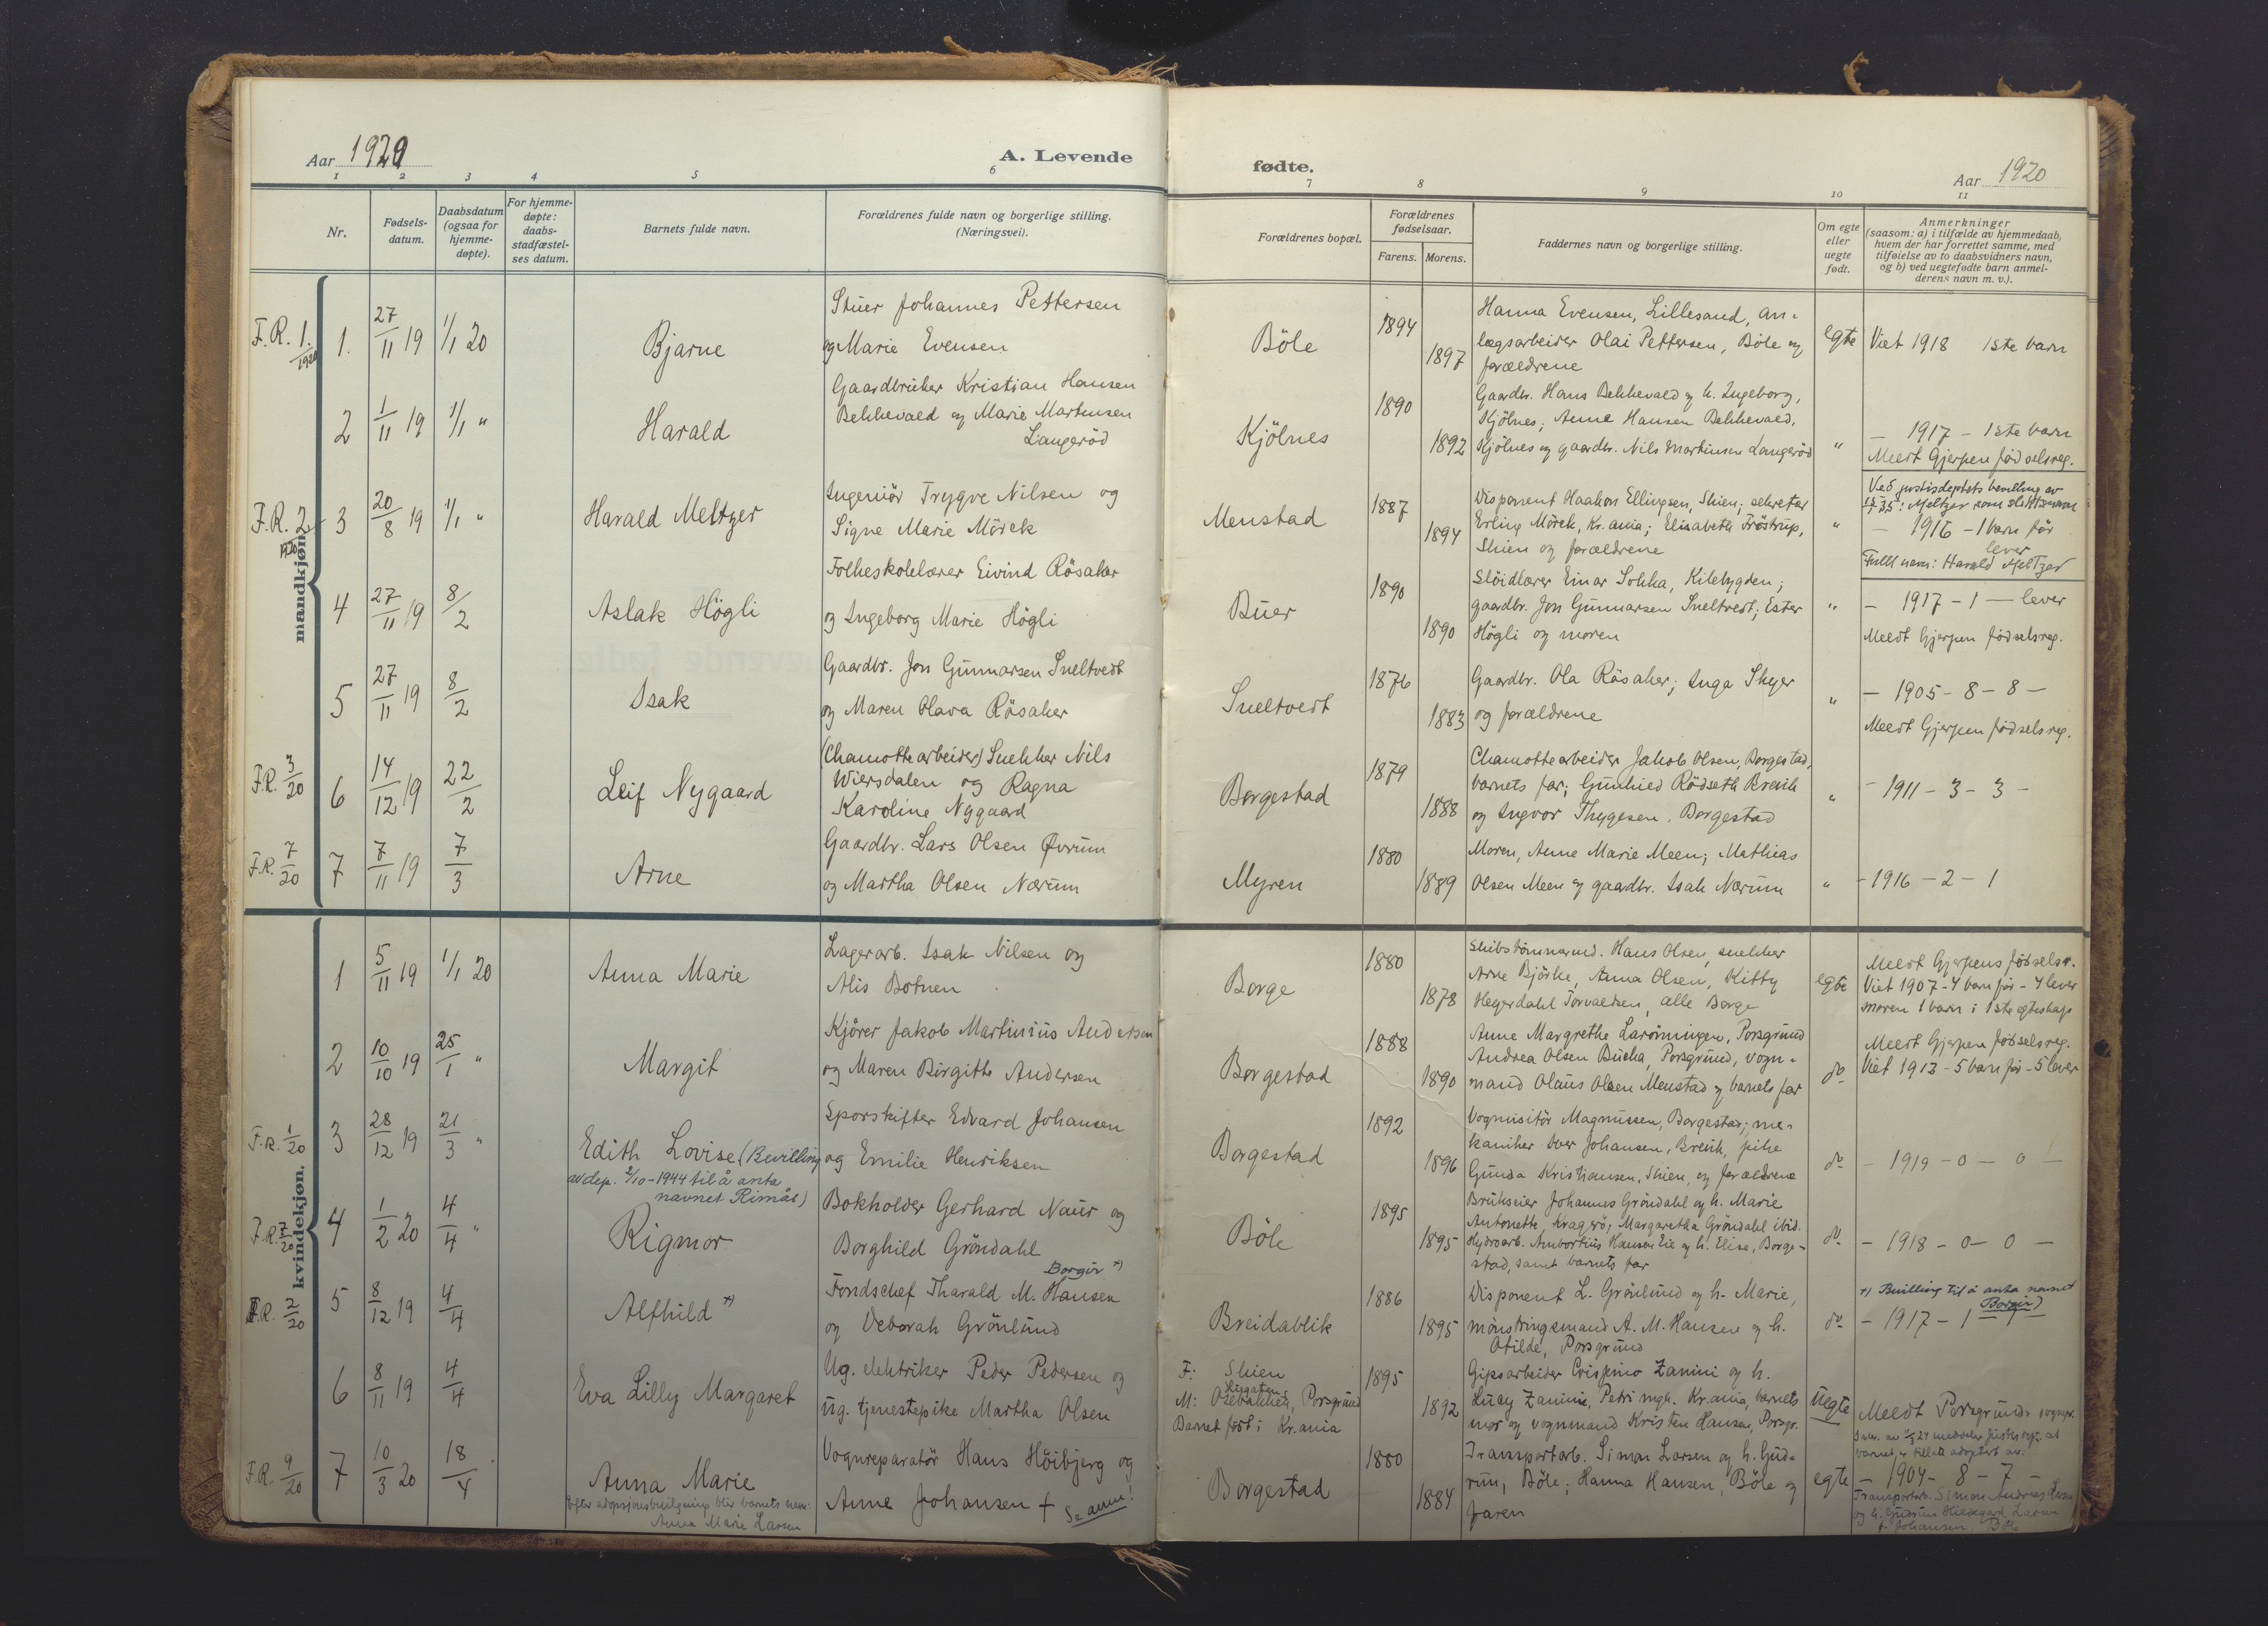 Aar 1920
A. Levende
fødte.
Aar 1920
1 2 3 4 5 6 7 8 9 10 11
Nr.
Fødsels-
datum.
Daabsdatum
(ogsaa for
hjemme-
døpte).
For hjemme-
døpte:
daabs-
stadfæstel-
ses datum.
Barnets fulde navn.
Forældrenes fulde navn og borgerlige stilling.
(Næringsvei).
Forældrenes bopæl.
Forældrenes
fødselsaar.
Farens. Morens.
Faddernes navn og borgerlige stilling.
Om egte
eller
uegte
født.
Anmerkninger
(saasom: a) i tilfælde av hjemmedaab,
hvem der har forrettet samme, med
tilføielse av to daabsvidners navn,
og b) ved uegtefødte barn anmel-
derens navn m. v.).
mandkjøn.
F.R. 1. 1920
1. 27/11 19 1/1 20
Bjarne
Stuer Johannes Pettersen
og Marie Evensen
Böle
1894
1897
Hanna Evensen, Lillesand, an-
lægsarbeider Olai Pettersen, Böle og
forældrene
egte
Viet 1918 1ste barn
2 1/11 19 1/1 "
Harald
Gaardbruker Kristian Hansen
Bekkevald og Marie Martinsen
Langeröd
Kjölnes
1890
1892
Gaardbr. Hans Bekkevald og h. Ingeborg,
Kjölnes; Anne Hansen Bekkevald,
Kjölnes og gaardbr. Nils Martinsen Langeröd
"
— 1917 - 1ste barn
Meldt Gjerpen födselsreg.
F.R. 2 1920
3 20/8 19 1/1 "
Harald Meltzer
Ingeniör Trygve Nilsen og
Signe Marie Mörck
Menstad
1887
1894
Disponent Haakon Ellingsen, Skien; sekretær
Erling Mörck, Kr.ania; Elisabeth Fröstrup,
Skien og forældrene
"
Ved justisdeptets bevilling av
: Meltzer som slektsnavn
— 1916 - 1 barn før
lever
Fullt navn: Harald Meltzer
4 27/11 19 8/2
Aslak Högli
Folkeskolelærer Eivind Räsaker
og Ingeborg Marie Högli
Buer
1890
1890
Slöidlærer Einar Sokka, Kilebygden;
gaardbr. Jon Gunnarsen Sneltvedt; Ester
Högli og moren
"
— 1917 - 1 — lever
Meldt Gjerpen födselsreg.
5 27/11 19 8/2
Isak
Gaardbr. Jon Gunnarsen Sneltvedt
og Maren Olava Räsaker
Sneltvedt
1876
1883
Gaardbr. Ola Räsaker; Inga Skyer
og forældrene
"
— 1905 - 8 - 8 —
Meldt Gjerpen födselsreg.
F.R. 3/20
6 14/12 19 22/2
Leif Nygaard
(Chamottearbeider) Snekker Nils
Wiersdalen og Ragna
Karoline Nygaard
Borgestad
1879
1888
Chamottearbeider Jakob Olsen, Borgestad,
barnets far; Gunhild Rödseth Brevik
og Ingvor Thygesen, Borgestad
"
— 1911 - 3 - 3 -
F.R. 7/20
7 7/11 19 7/3
Arne
Gaardbr. Lars Olsen Øvrum
og Martha Olsen Nærum
Myren
1880
1889
Moren, Anne Marie Meen; Mathias
Olsen Meen og gaardbr. Isak Nærum
"
- 1916 - 2 - 1
kvindekjøn.
1 5/11 19 1/1 20
Anna Marie
Lagerarb. Isak Nilsen og
Alis Botnen
Borge
1880
1878
Skibstömmermd. Hans Olsen, snekker
Arne Bjørke, Anna Olsen, Kitty
Heyerdahl Torvaldsen, alle Borge
egte
Meldt Gjerpens födselsr.
Viet 1907 - 4 barn før - 4 lever
moren 1 barn i 1ste egteskap
2 10/10 19 25/1 "
Margit
Kjörer Jakob Martinius Andersen
og Maren Birgitte Andersen
Borgestad
1888
1890
Anne Margrethe Larönningen, Porsgrund
Andrea Olsen Bucha, Porsgrund, vogn-
mand Olaus Olsen Menstad og barnets far
do
Meldt Gjerpen födselsreg.
Viet 1912 - 5 barn før - 5 lever
F.R. 1/20
3 28/12 19 21/3 "
Edith Lovise (Bevilling
av dep. 2/10-1944 til å anta
navnet Rimås)
Sporskifter Edvard Johansen
og Emilie Henriksen
Borgestad
1892
1896
Vognvisitör Magnussen, Borgestad; me-
kaniker Iver Johansen, Brevik, pike
Gunda Kristiansen, Skien, og forældrene
do
— 1919 - 0 - 0 —
F.R. 7/20
4 1/2 20 4/4 "
Rigmor
Bokholder Gerhard Naur og
Borghild Gröndahl
Böle
1895
1895
Brukseier Johannes Gröndahl og h. Marie
Antonette, Kragerö; Margaretha Gröndahl ibid.
Hydroarb. Ambortius Hansen Lie og h. Elise, Borge-
stad, samt barnets far
do
— 1918 - 0 - 0 —
F.R. 2/20
5 8/12 19 4/4
Alfhild *)
Borgir *)
Fondschef Tharald M. Hansen
og Deborah Grönlund
Breidablik
1886
1895
Disponent L. Grönlund og h. Marie,
mönstringsmand A. M. Hansen og h.
Otilde, Porsgrund
do
*) Bevilling til å anta navnet
Borgir)
— 1917 - 1 - 1 —
6 8/11 19 4/4
Eva Lilly Margaret
Ug. elektriker Peder Pedersen og
ug. tjenestepike Martha Olsen
F: Skien
M: Osebakken, Porsgrund
Barnet født i Kr.ania
1895
1892
Gipsarbeider Crispino Zanini og h.
Lucy Zanini, Petri mgh. Kr.ania, barnets
mor og vognmand Kristen Hansen, Porsgr.
Uegte
Meldt Porsgrunds sognepr.
F.R. 9/20
7 10/3 20 18/4
Anna Marie
Efter adopsjonsbevilgning blir barnets navn:
Anna Marie Larsen
Vognreparatör Hans Höibjerg og
Anne Johansen † Se anm!
Borgestad
1880
1884
Transportarb. Simon Larsen og h. Gud-
run, Böle; Hanna Hansen, Böle og
faren
egte
barnet er tillatt adoptert av:
— 1904 - 8 - 7 —
Transportarb. Simon Andreas Larsen
og h. Gudrun Hildegard Larsen
f. Johansen, Böle